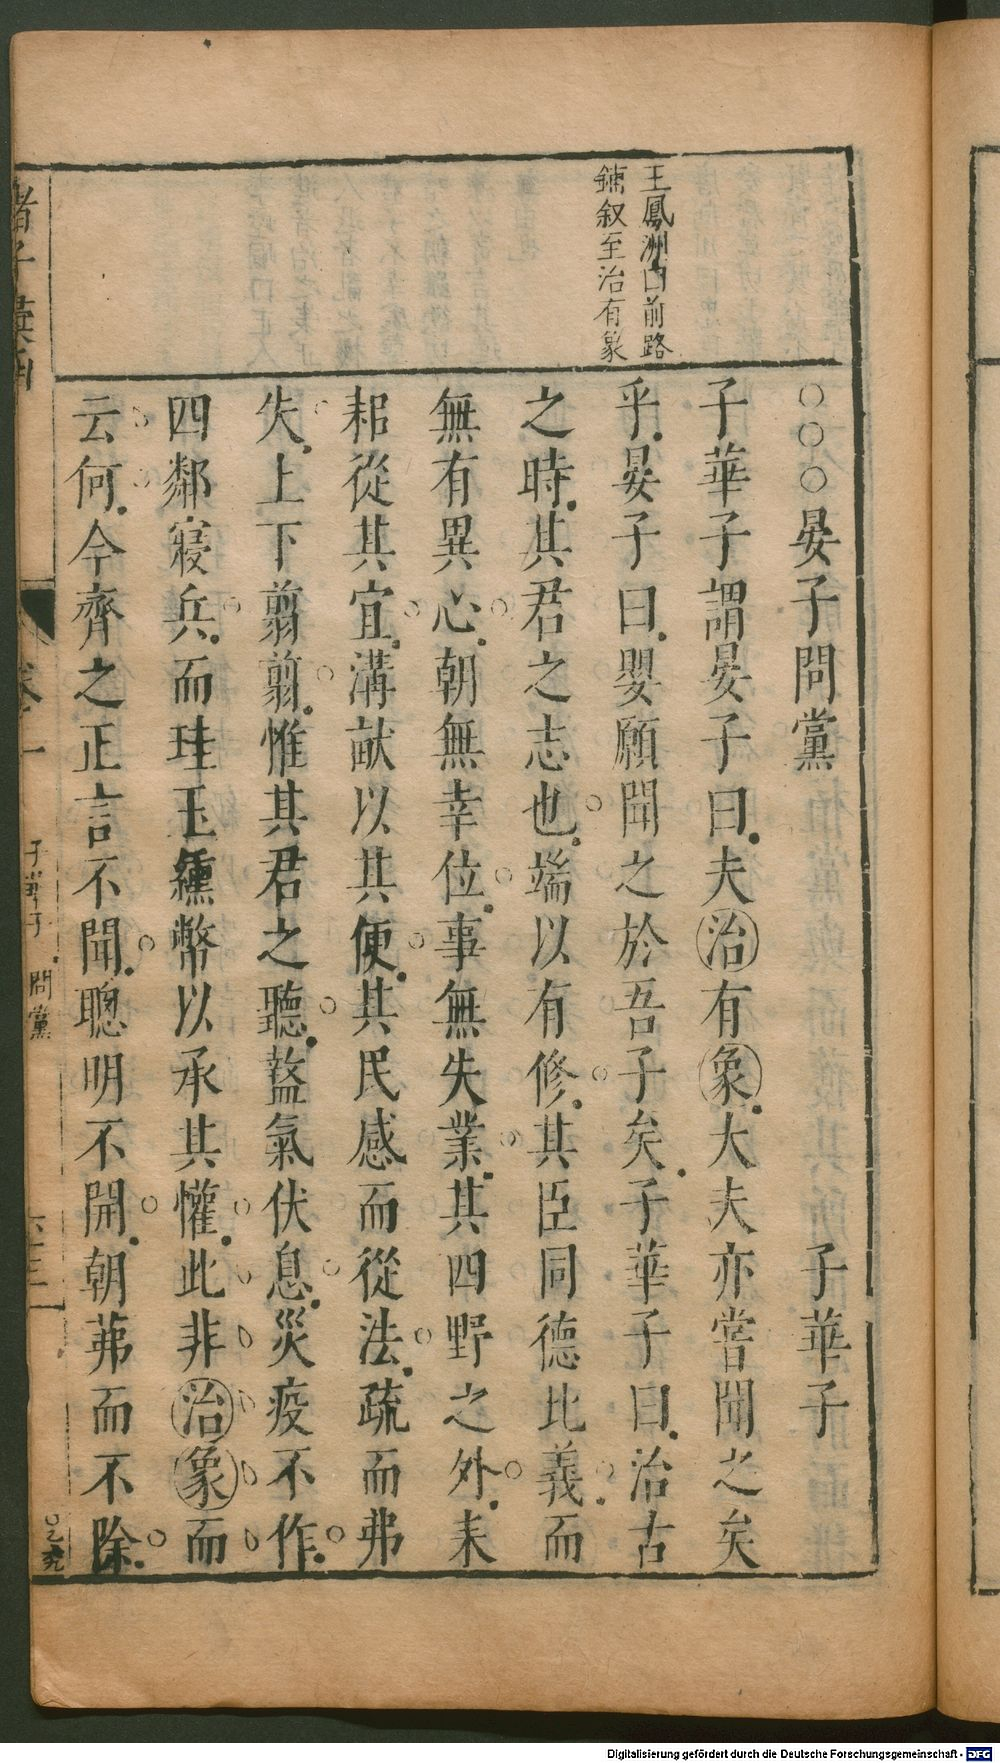 王鳳洲曰前路
鋪叙至治有象
○○○晏子問黨 子華子
子華子謂晏子曰夫治有象大夫亦嘗聞之矣
乎晏子曰嬰願聞之於吾子矣子華子曰治古
之時其君之志也端以有修其臣同德比義而
無有異心朝無幸位事無失業其四野之外耒
耜從其宜溝畎以其便其民感而從法疏而弗
失上下翦翦惟其君之聽盭氣伏息災疫不作
四鄰寢兵而珪玉纁幣以承其懽此非治象而
云何今齊之正言不聞聰明不開朝茀而不除
諸子彙函
卷一
子華子 問黨
Digitalisierung gefördert durch die Deutsche Forschungsgemeinschaft - DFG